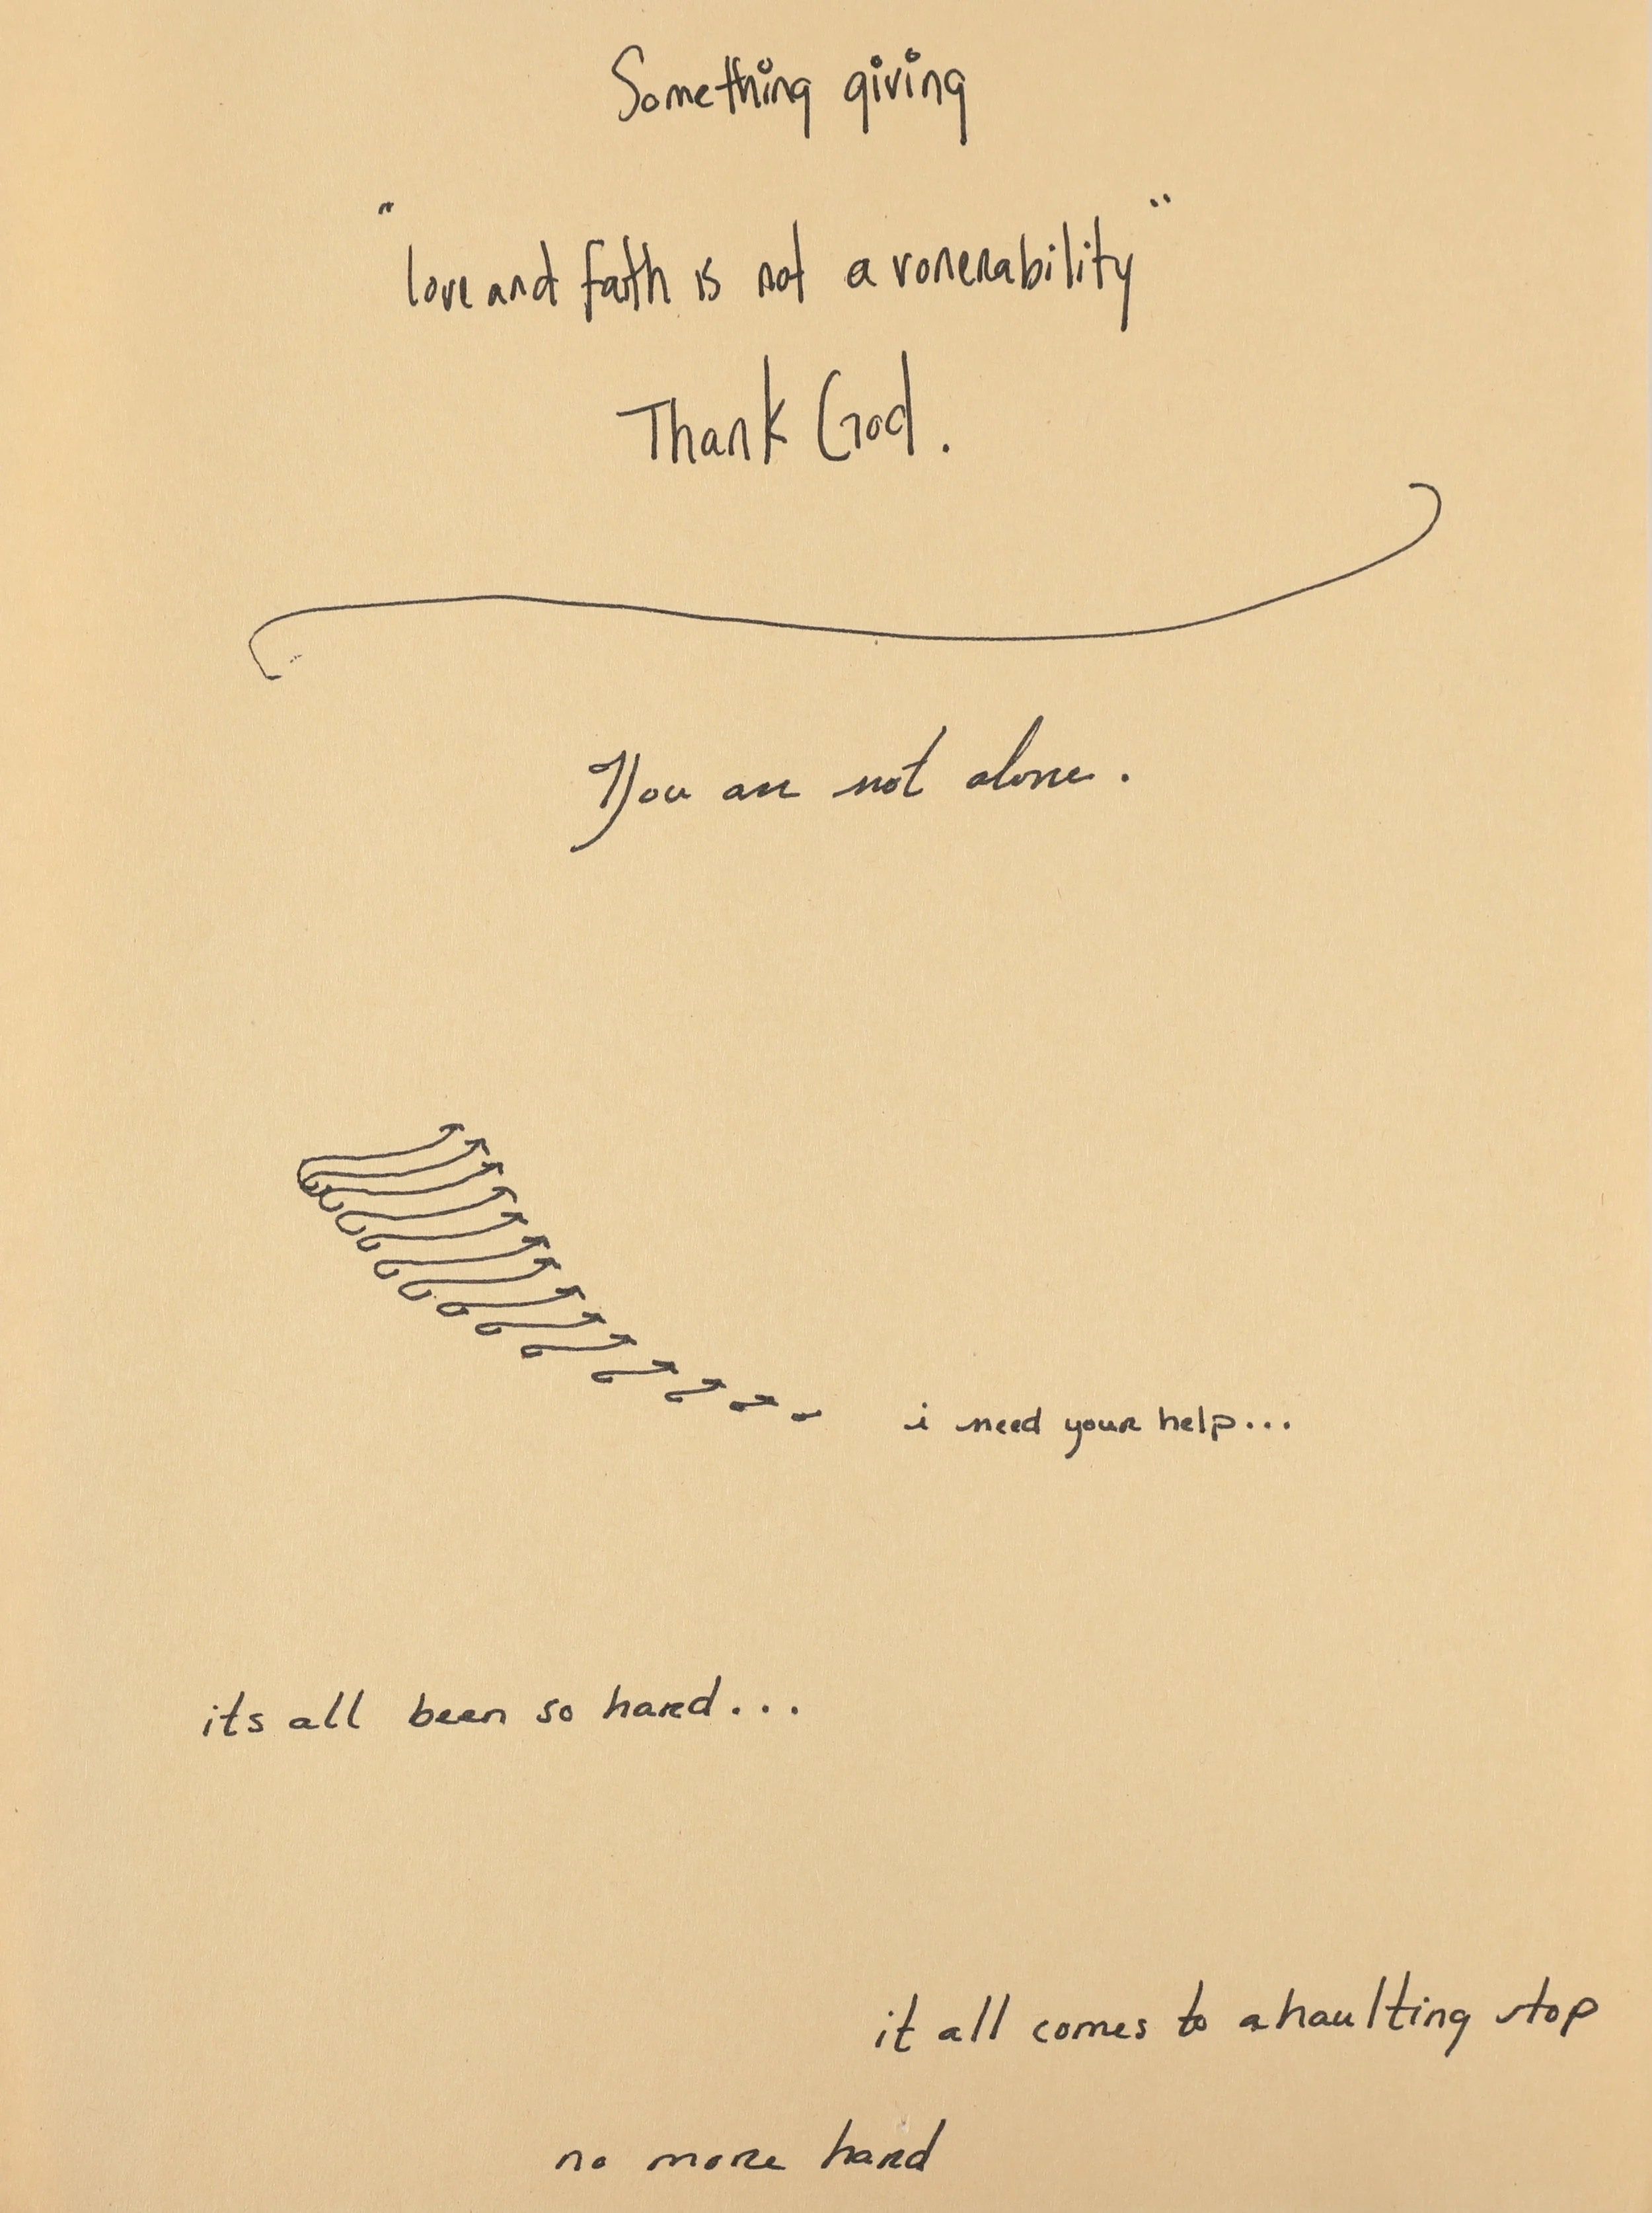 Something giving
"love and faith is not a vonerability"
Thank God.
You are not alone.
i need your help...
its all been so hard...
it all comes to a haulting stop
no more hard